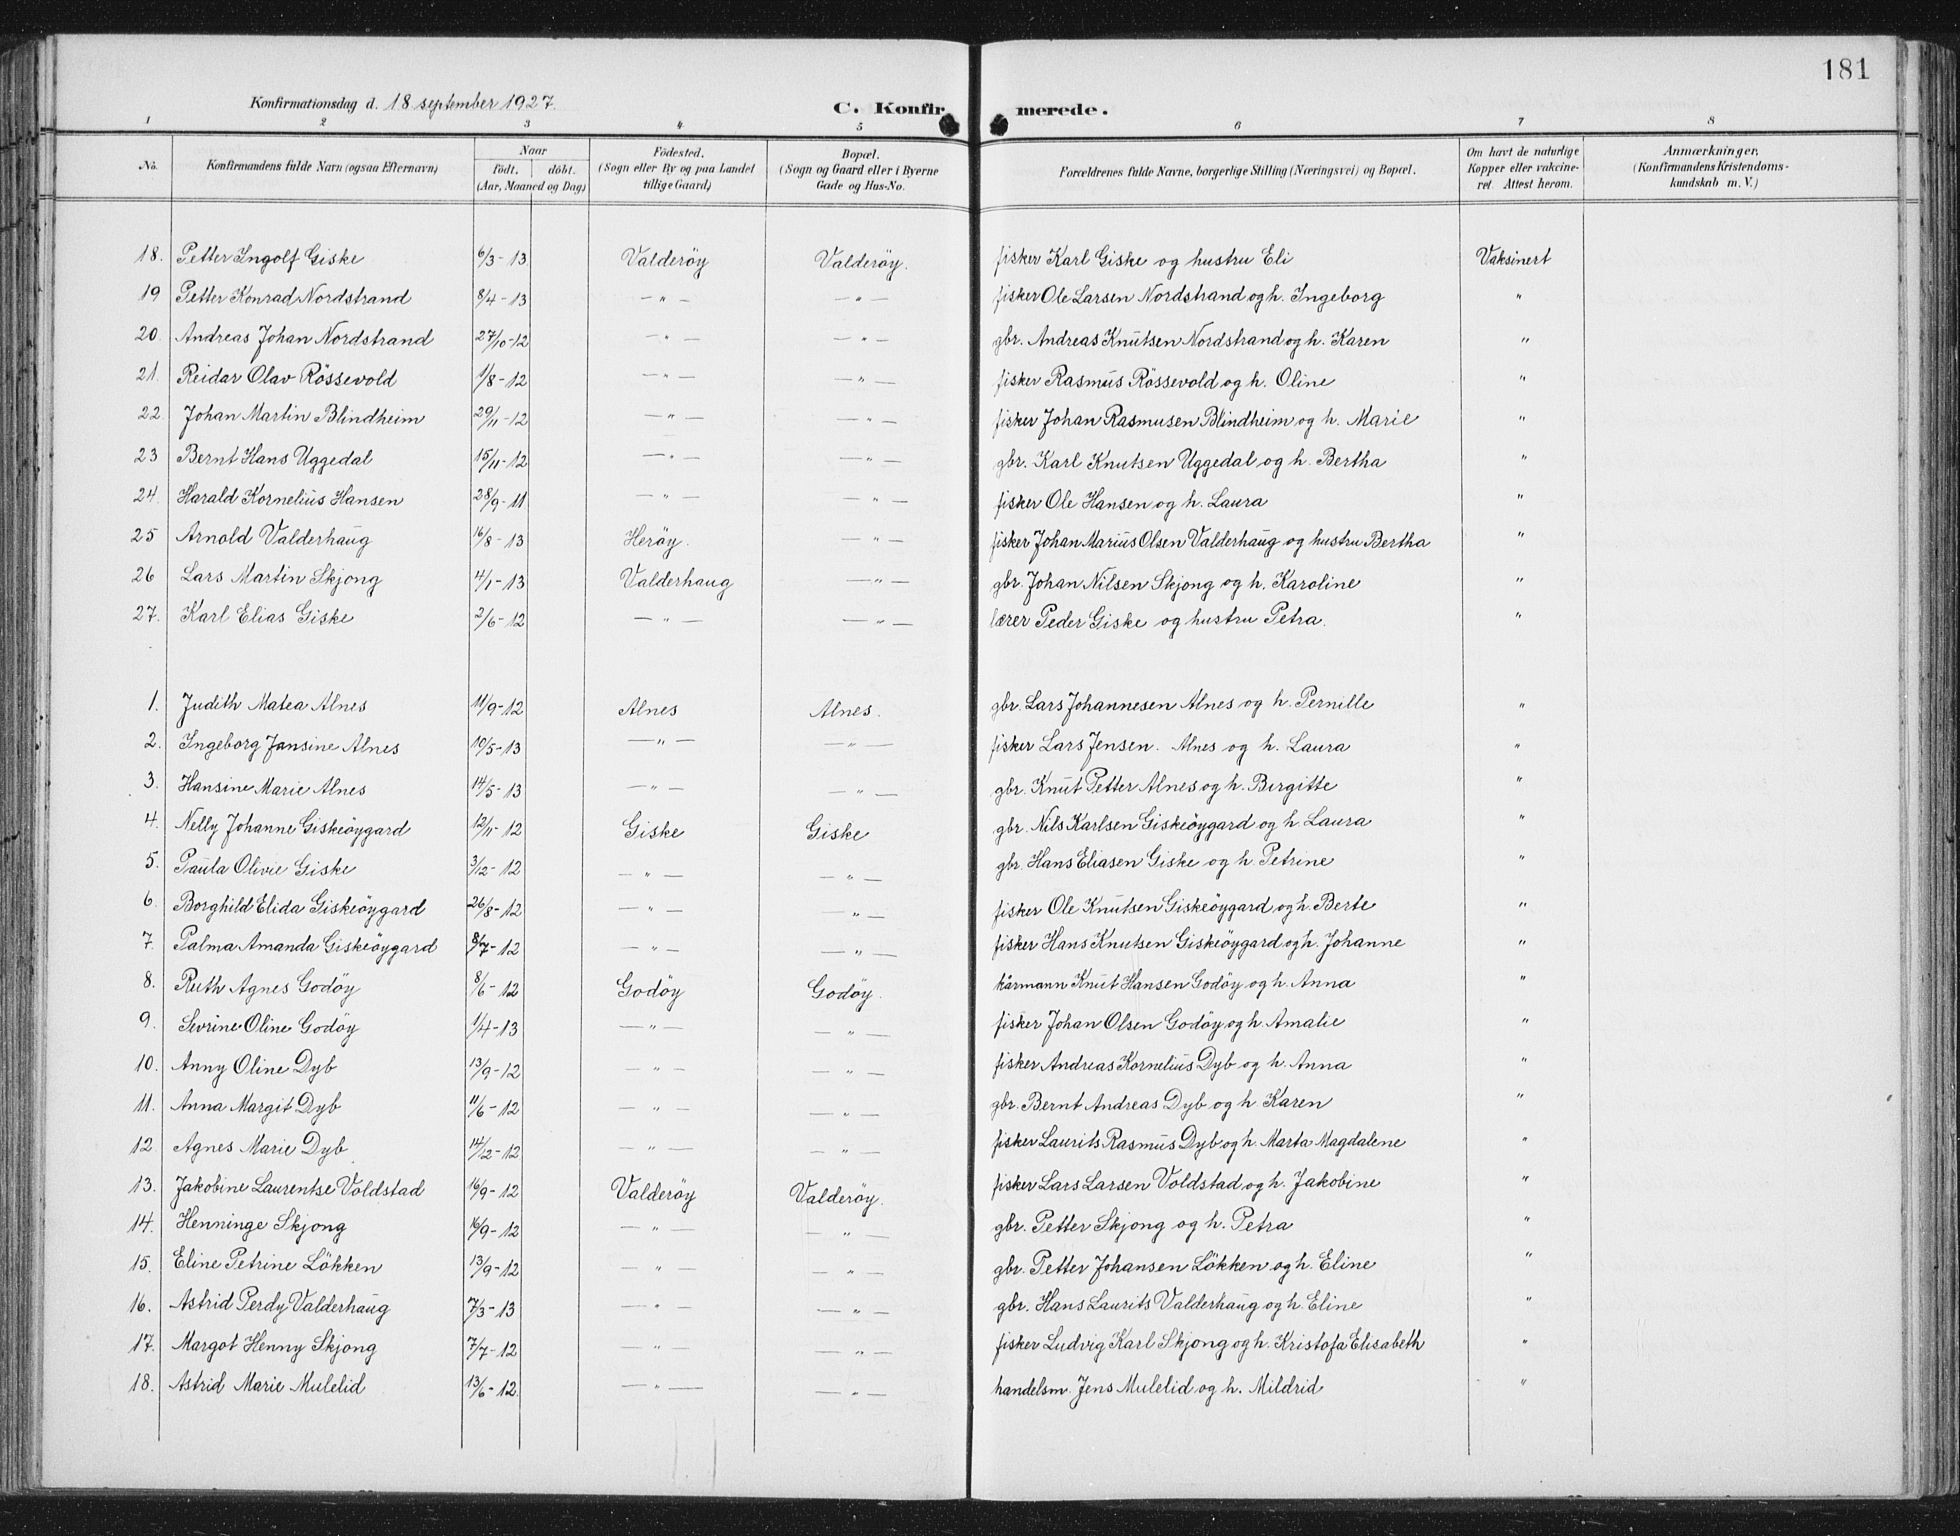 181
Konfirmationsdag d. 18 september 1927. C. Konfirmerede.
1 2 3 4 5 6 7 8
No. Konfirmandens fulde Navn (ogsaa Efternavn) Naar født. døbt. (Aar, Maaned og Dag) Födested. (Sogn eller By og paa Landet tillige Gaard) Bopæl. (Sogn og Gaard eller i Byerne Gade og Hus-No. Forældrenes fulde Navne, borgerlige Stilling (Næringsvei) og Bopæl. Om havt de naturlige Kopper eller vakcineret. Attest herom. Anmærkninger, (Konfirmandens Kristendomskundskab m. V.)
18. Petter Ingolf Giske 6/3-13 Valderöy Valderöy. fisker Karl Giske og hustru Eli Vaksinert
19 Petter Konrad Nordstrand 8/4-13 — " — — " — fisker Ole Larsen Nordstrand og h. Ingeborg "
20. Andreas Johan Nordstrand 27/10-12 — " — — " — gbr. Andreas Knutsen Nordstrand og h. Karen "
21. Reidar Olav Rössevold 1/8-12 — " — — " — fisker Rasmus Rössevold og h. Oline "
22. Johan Martin Blindheim 29/11-12 — " — — " — fisker Johan Rasmusen Blindheim og h. Marie "
23 Bernt Hans Uggedal 15/11-12 — " — — " — gbr. Karl Knutsen Uggedal og h. Bertha "
24. Harald Kornelius Hansen 28/9-11 — " — — " — fisker Ole Hansen og h. Laura "
25 Arnold Valderhaug 16/8-13 Heröy. — " — fisker Johan Marius Olsen Valderhaug og hustru Bertha "
26 Lars Martin Skjong 4/1-13 Valderhaug — " — gbr. Johan Nilsen Skjong og h. Karoline "
27. Karl Elias Giske 2/6-12 — " — — " — lærer Peder Giske og hustru Petra. "
1. Judith Matea Alnes 11/9-12 Alnes Alnes. gbr. Lars Johannesen Alnes og h. Pernille "
2. Ingeborg Jansine Alnes 10/5-13 — " — — " — fisker Lars Jensen. Alnes og h. Laura "
3. Hansine Marie Alnes 14/5-13 — " — — " — gbr. Knut Petter Alnes og h. Birgitte "
4. Nelly Johanne Giskeöygard 12/11-12 Giske Giske gbr. Nils Karlsen Giskeöygard og h. Laura "
5. Paula Olivie Giske 3/12-12 — " — — " — gbr. Hans Eliasen Giske og h. Petrine "
6. Borghild Elida Giskeöygard 26/8-12 — " — — " — fisker Ole Knutsen Giskeöygard og h. Berte "
7. Palma Amanda Giskeöygard 8/7-12 — " — — " — fisker Hans Knutsen Giskeöygard og h. Johanne "
8. Ruth Agnes Godöy 8/6-12 Godöy Godöy. kårmann Knut Hansen Godöy og h. Anna "
9. Sevrine Oline Godöy 1/4-13 — " — — " — fisker Johan Olsen Godöy og h. Amalie "
10. Anny Oline Dyb 13/9-12 — " — — " — fisker Andreas Kornelius Dyb og h. Anna "
11. Anna Margit Dyb 11/6-12 — " — — " — gbr. Bernt Andreas Dyb og h. Karen "
12 Agnes Marie Dyb 14/12-12 — " — — " — fisker Laurits Rasmus Dyb og h. Marta Magdalene "
13. Jakobine Laurentse Voldstad 16/9-12 Valderöy Valderöy. fisker Lars Larsen Voldstad og h. Jakobine "
14. Henninge Skjong 16/9-12 — " — — " — gbr. Petter Skjong og h. Petra "
15. Eline Petrine Lökken 13/9-12 — " — — " — gbr. Petter Johansen Lökken og h. Eline "
16. Astrid Perdy Valderhaug 7/3-13 — " — — " — gbr. Hans Laurits Valderhaug og h. Eline "
17. Margot Henny Skjong 7/7-12 — " — — " — fisker Ludvig Karl Skjong og h. Kristofa Elisabeth "
18. Astrid Marie Mulelid 13/6-12 — " — — " — handelsm. Jens Mulelid og h. Mildrid "